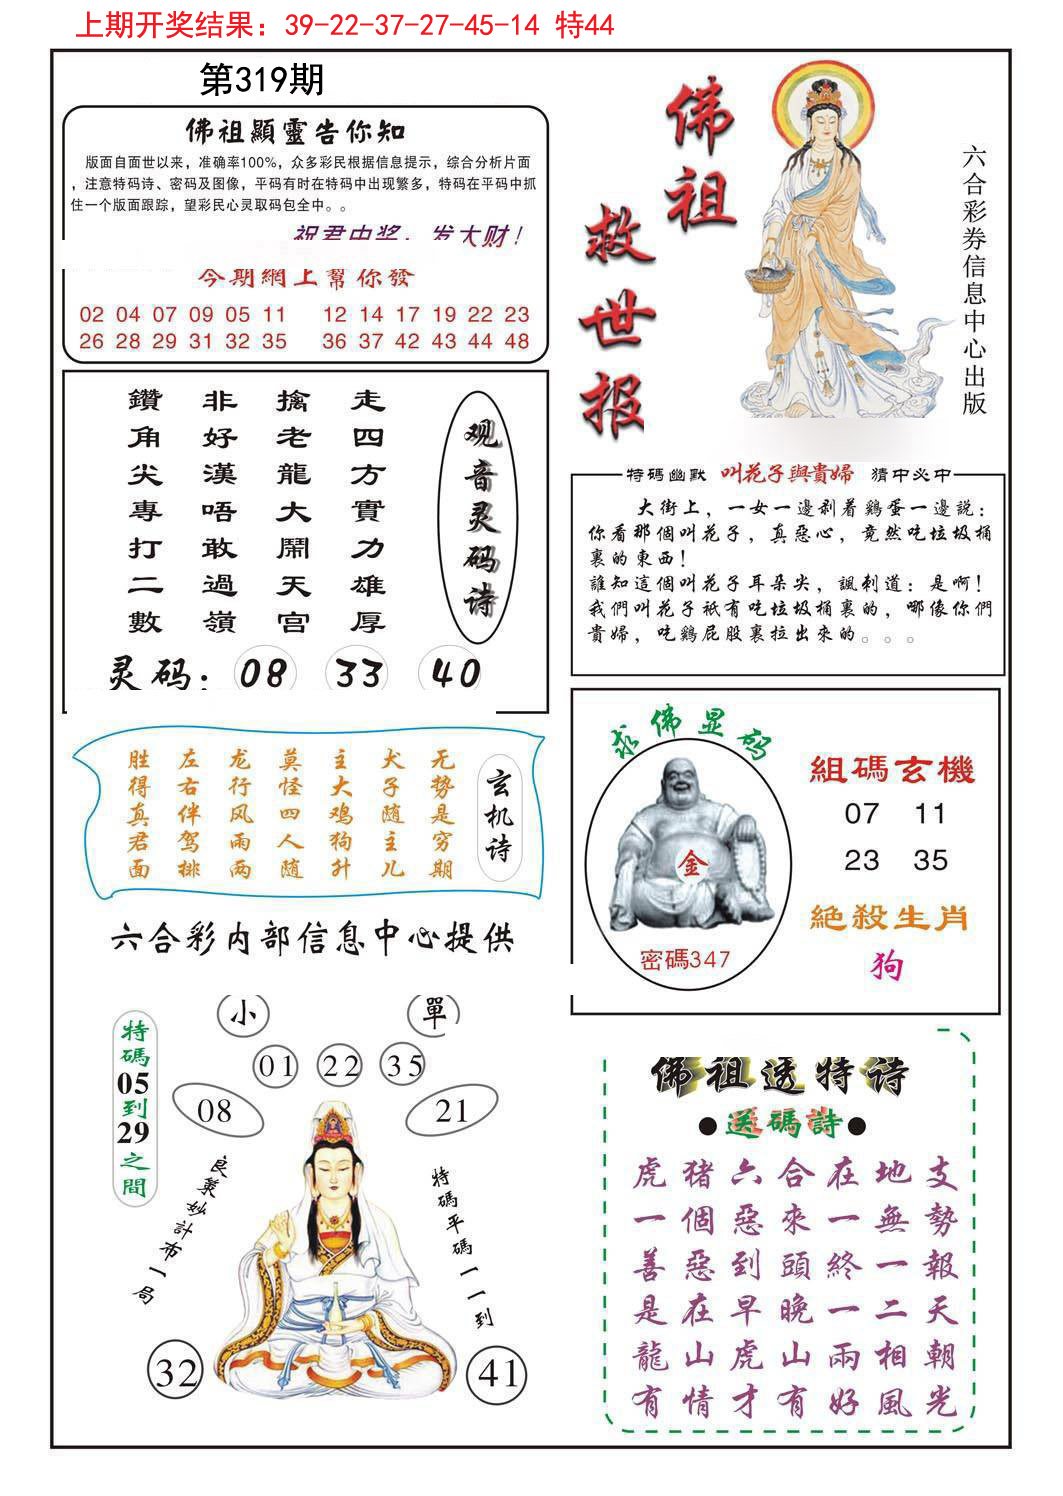 上期开奖结果：39-22-37-27-45-14 特44
第319期
佛祖顯靈告你知
版面自面世以来，准确率100%，众多彩民根据信息提示，综合分析片面
，注意特码诗、密码及图像，平码有时在特码中出现繁多，特码在平码中抓
住一个版面跟踪，望彩民心灵取码包全中。。
祝君中奖，发大财！
今期網上幫你發
02 04 07 09 05 11 12 14 17 19 22 23
26 28 29 31 32 35 36 37 42 43 44 48
佛祖
救世报
六合彩券信息中心出版
观音灵码诗
走四方實力雄厚
擒老龍大鬧天宮
非好漢唔敢過嶺
鑽角尖專打二數
灵码：08 33 40
特碼幽默 叫花子與貴婦 猜中必中
大街上，一女一邊剥着鷄蛋一邊説：
你看那個叫花子，真惡心，竟然吃垃圾桶
裏的東西！
誰知這個叫花子耳朵尖，諷刺道：是啊！
我們叫花子衹有吃垃圾桶裏的，哪像你們
貴婦，吃鷄屁股裏拉出來的。。。
玄机诗
无势是穷期
犬子随主儿
主大鸡狗升
莫怪四人随
龙行风雨两
左右伴驾排
胜得真君面
六合彩内部信息中心提供
求佛显码
金
密碼347
組碼玄機
07 11
23 35
絕殺生肖
狗
小 單
01 22 35
08 21
特碼05到29之間
良策妙計布一局
特碼平碼一一到
32 41
佛祖透特诗
●送碼詩●
虎猪六合在地支
一個惡來一無勢
善惡到頭終一報
是在早晚一二天
龍山虎山兩相朝
有情才有好風光